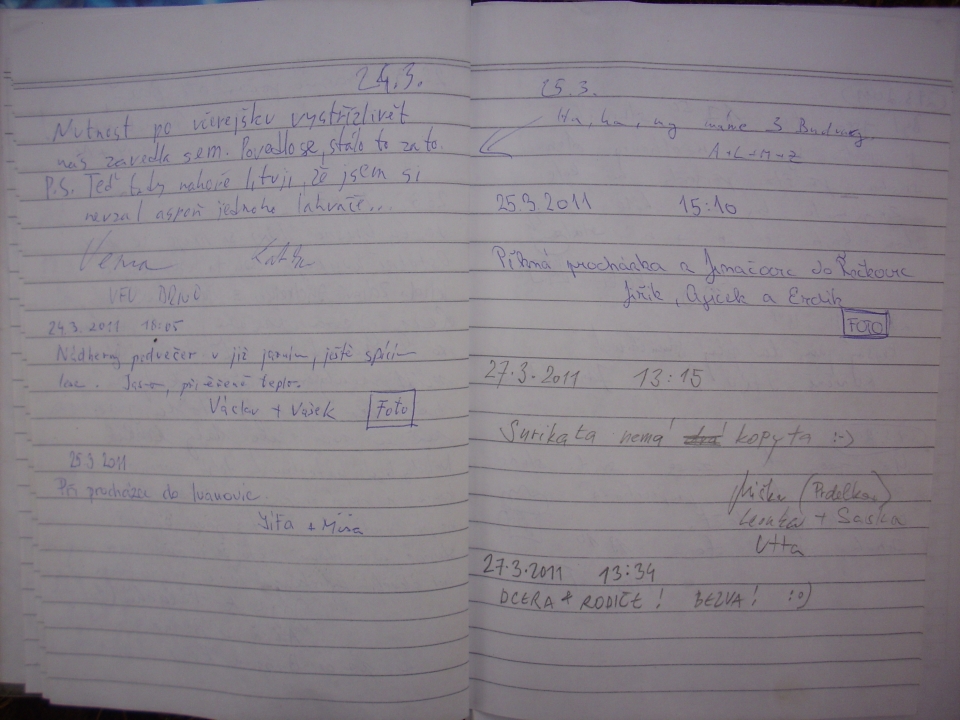 24.3.
Nutnost po včerejšku vystřízlivět
nás zavedla sem. Povedlo se, stálo to za to.
P.S. Teď tady nahoře lituji, že jsem si
nevzal aspoň jednoho lahváče...
VFU BRNO
24.3.2011 18:05
Nádherný podvečer v již jarním, ještě spícím
lese. Jasno, přiměřeně teplo.
Václav + Vašek Foto
25.3.2011
Při procházce do Ivanovic.
Jířa + Míra
25.3.
Ha, ha, my máme 3 Budvary.
A+L+M+Z
25.3.2011 15:10
Pěkná procházka z Jinačovic do Řečkovic
Jiřík, Ajíček a Erdík
FOTO
27.3.2011 13:15
Surikata nemá kopyta :-)
Miška (Prdelka)
Lenka + Saska
27.3.2011 13:34
DCERA + RODIČE! BEZVA! :o)